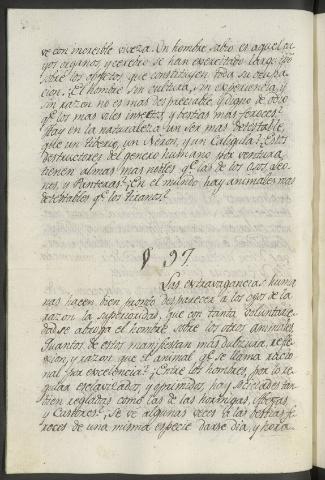 ve con increible viveza. Un hombre sabio es aquel cu
yos organos, y cerebro se han exercitado largo tpo
sobre los objetos, que constituyen toda su ocupa
cion. ¿El hombre sin cultura, sin experiencia, y
sin razon no es mas despreciable, y digno de odio
qe los mas viles insectos, y bestias mas feroces?
¿Hay en la naturaleza un ser mas detestable,
que un Tiberio, un Neron, y un Caligula? ¿Estos
destructores del genero humano por ventura
tienen almas mas nobles qe las de los Osos, Leo
nes, y Panteras? ¿En el mundo hay animales mas
detestables qe los tiranos?
§ 97.
Las extravagancias huma
nas hacen bien pronto desparecer a los ojos de la
razon la superioridad, que con tanta voluntarie
dad se abroga el hombre sobre los otros animales.
¿Quantos de estos manifestan mas dulzura, refle
xion, y razon que el animal qe se llama racio
nal por excelencia? ¿Entre los hombres, por lo re
gular esclavizados, y oprimidos, hay sociedades tan
bien regladas como las de las hormigas, abejas
y Castores? ¿Se ve algunas veces a las bestias fe
roces de una misma especie darse dia, y hora